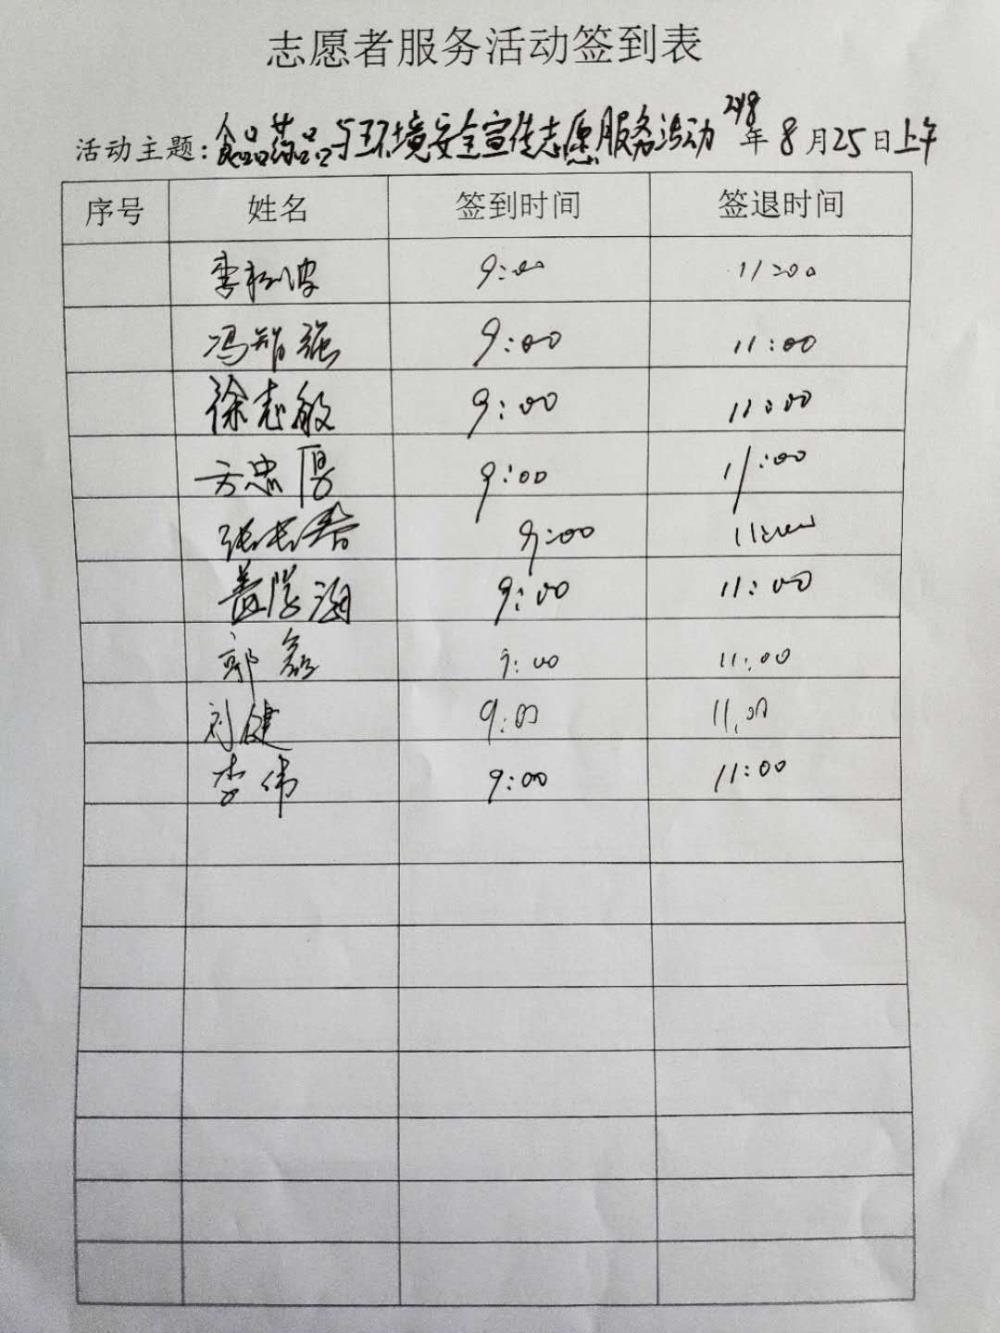 志愿者服务活动签到表
活动主题:食品药品与环境安全宣传志愿服务活动 2018年8月25日上午
序号 姓名 签到时间 签退时间
李松波 9:00 11:00
冯智强 9:00 11:00
徐志敏 9:00 11:00
方忠厚 9:00 11:00
张长春 9:00 11:00
9:00 11:00
郭磊 9:00 11:00
刘健 9:00 11:00
李伟 9:00 11:00